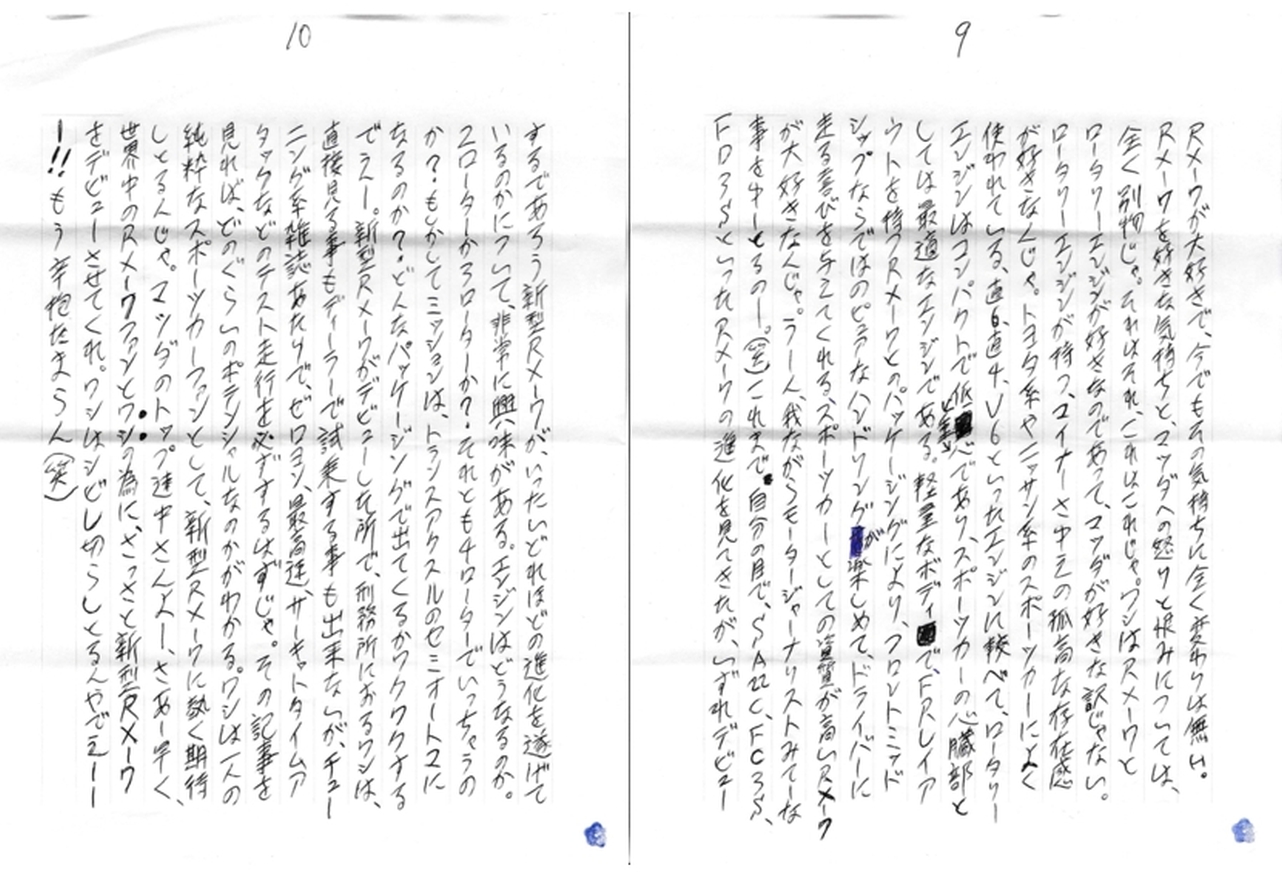 9
Rメークが大好きで、今でもその気持ちに全く変わりは無い。
Rメークを好きな気持ちと、マツダへの怒りと恨みについては、
全く別物じゃ。それはそれ、これはこれじゃ。ワシはRメークと
ロータリーエンジンが好きなのであって、マツダが好きな訳じゃない。
ロータリーエンジンが持つ、コイナーさ中々の孤高な存在感
が好きなんじゃ。トヨタ系やニッサン系のスポーツカーによく
使われている、直6、直4、V6といったエンジンに較べて、ロータリー
エンジンはコンパクトで低重心であり、スポーツカーの心臓部と
しては最適なエンジンである。軽量なボディで、FRレイア
ウトを持つRメークとのパッケージングにより、フロントミッド
シップならではのピュアなハンドリングが楽しめてドライバーに
走る喜びを与えてくれる、スポーツカーとしての資質が高いRメーク
が大好きなんじゃ。うーん、我ながらモータージャーナリストみてーな
事をゆーとるのー。(笑)これまで自分の目で、SA22C、FC3S、
FD3SといったRメークの進化を見てきたが、いずれデビュー
10
するであろう新型Rメークが、いったいどれほどの進化を遂げて
いるのかについて、非常に興味がある。エンジンはどうなるのか。
2ローターか3ローターか?それとも4ローターでいっちゃうの
か?もしかしてミッションは、トランスアクスルのセミオートマに
なるのか?どんなパッケージングで出てくるかワクワクする
でぇー。新型Rメークがデビューした所で、刑務所におるワシは、
直接見る事もディーラーで試乗する事も出来ないが、チュー
ニング系雑誌あたりで、ゼロヨン、最高速、サーキットタイムア
タックなどのテスト走行を必ずするはずじゃ。その記事を
見れば、どのぐらいのポテンシャルなのかがわかる。ワシは一人の
純粋なスポーツカーファンとして、新型Rメークに熱く期待
しとるんじゃ。マツダのトップ連中さんよー、さあー早く、
世界中のRメークファンとワシの為に、さっさと新型Rメーク
をデビューさせてくれ。ワシはシビレ切らしとるんやでえー
ー!!もう辛抱たまらん(笑)